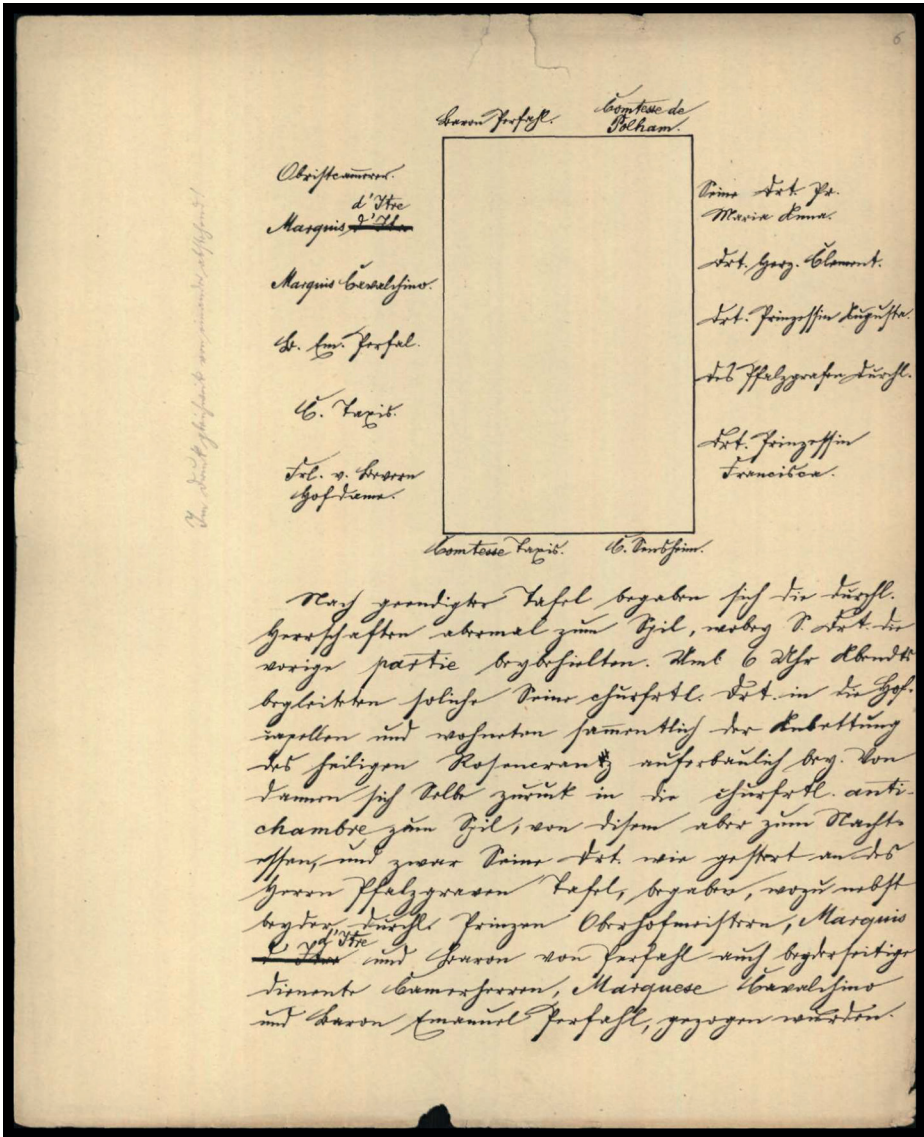 6
Baron Perfahl.
Comtesse de
Polham.
Obristcam̅erer.
d'Itre
Marquis d'Itre
Marquis Cavalchino.
B. Em. Perfal.
C. Taxis.
Frl. v. Bevern
Hofdame.
Seine Drt. Pr.
Maria Anna.
Drt. Herz. Clement.
Drt. Prinzessin Augusta.
Des Pfalzgrafen Durchl.
Drt. Prinzessin
Francisca.
Comtesse Taxis.
C. Sensheim.
Im Druck gleichweit von einander abstehend!
Nach geendigter Tafel begaben sich die durchl.
Herrschaften abermal zum Spil, wobey S. Drt. die
vorige partie beybehielten. Umb 6 Uhr Abendts
begleiteten soliche Seine churfrtl. Drt. in die Hof-
capellen und wohneten sam̅entlich der Anbettung
des heiligen Rosencrantz auferbaulich bey. Von
dannen sich Selbe zuruk in die churfrtl. anti-
chambre zum Spil, von disem aber zum Nacht-
essen, und zwar Seine Drt. wie gestert an des
Herrn Pfalzgraven Tafel, begaben, wozu nebst
beyder durchl. Prinzen Oberhofmeistern, Marquis
d'Itre
und Baron von Perfahl auch beyderseitige
dienente Camerherren, Marquese Cavalchino
und Baron Emanuel Perfahl, gezogen wurden.